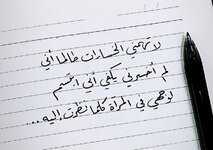 لا تهمني الخسارات طالما أني
لم أخسرني يكفي أني ابتسم
لوجهي في المرآة كلما نظرت إليه...